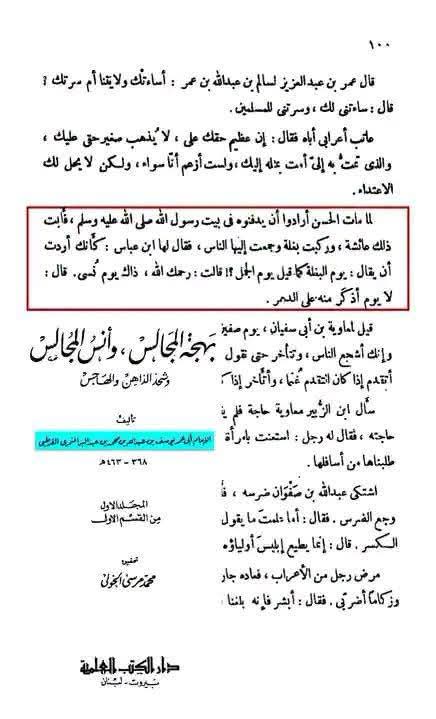 ١٠٠
قال عمر بن عبدالعزيز لسالم بن عبدالله بن عمر : أساءتك ولايتنا أم سرتك ؟
قال : ساءتنى لك ، وسرتنى للمسلمين .
عاتب أعرابى أباه فقال : إن عظيم حقك على ، لا يُذهب صغير حقى عليك ،
والذى تمتُّ به إلىّ أمت بمثله إليك ، ولست أزعم أنا سواء ، ولكن لا يحل لك
الاعتداء .
لما مات الحسن أرادوا أن يدفنوه فى بيت رسول الله صلى الله عليه وسلم ، فأبت
ذلك عائشة ، وركبت بغلة وجمعت إليها الناس ، فقال لها ابن عباس : كأنك أردت
أن يقال : يوم البغلة كما قيل يوم الجمل ؟! قالت : رحمك الله ، ذاك يوم نُسى . قال :
لا يوم أذكَر منه على الدهر .
قيل لمعاوية بن أبى سفيان ، يوم صفين
وإنك أشجع الناس ، وتتأخر حتى نقول
أتقدم إذا كان التقدم غُنما ، وأتأخر إذا كا
سأل ابن الزُّبير معاوية حاجة فلم يق
حاجته ، فقال له رجل : استعنت بامرأة
طلبناها من أسافلها .
اشتكى عبدالله بن صَفْوَان ضرسه ، فأ
وجع الضرس . فقال : أما علمتَ ما يقول
الكسر . قال : إنما يطيع إبليسَ أولياؤه
مرض رجل من الأعراب ، فعاده جار
وزكاما أضرّ بى . فقال : أبشر فإنه بلغنا
بهجة المجالس ، وأنس المجالس
وشحذ الذاهن والهاجس
تأليف
الإمام أبى عمر يوسف بن عبدالله بن محمد بن عبد البر النمرى القرطبى
٣٦٨ - ٤٦٣ هـ
المجلد الأول
من القسم الأول
تحقيق
محمد مرسى الخولى
دار الكتب العلمية
بيروت - لبنان